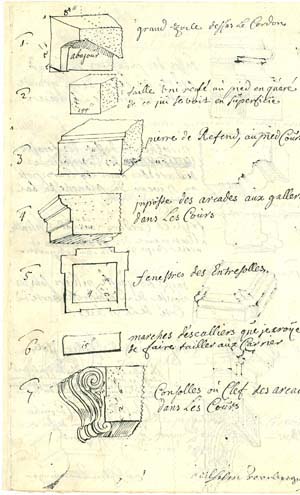 1.
grand socle dessus le Cordon
abajour
2
taille uni au pied en quaré
de ce qui se voit en superficie
3
pierre de Refend, au pied Cour
4
inposte des arcades aux galler
dans Les Cours
5
fenestres des Entresolles.
6
15
marches d'escalliers que je croye
de faire tailler aux Carrier
7
Consolles où Clef des arcad
dans Les Cours